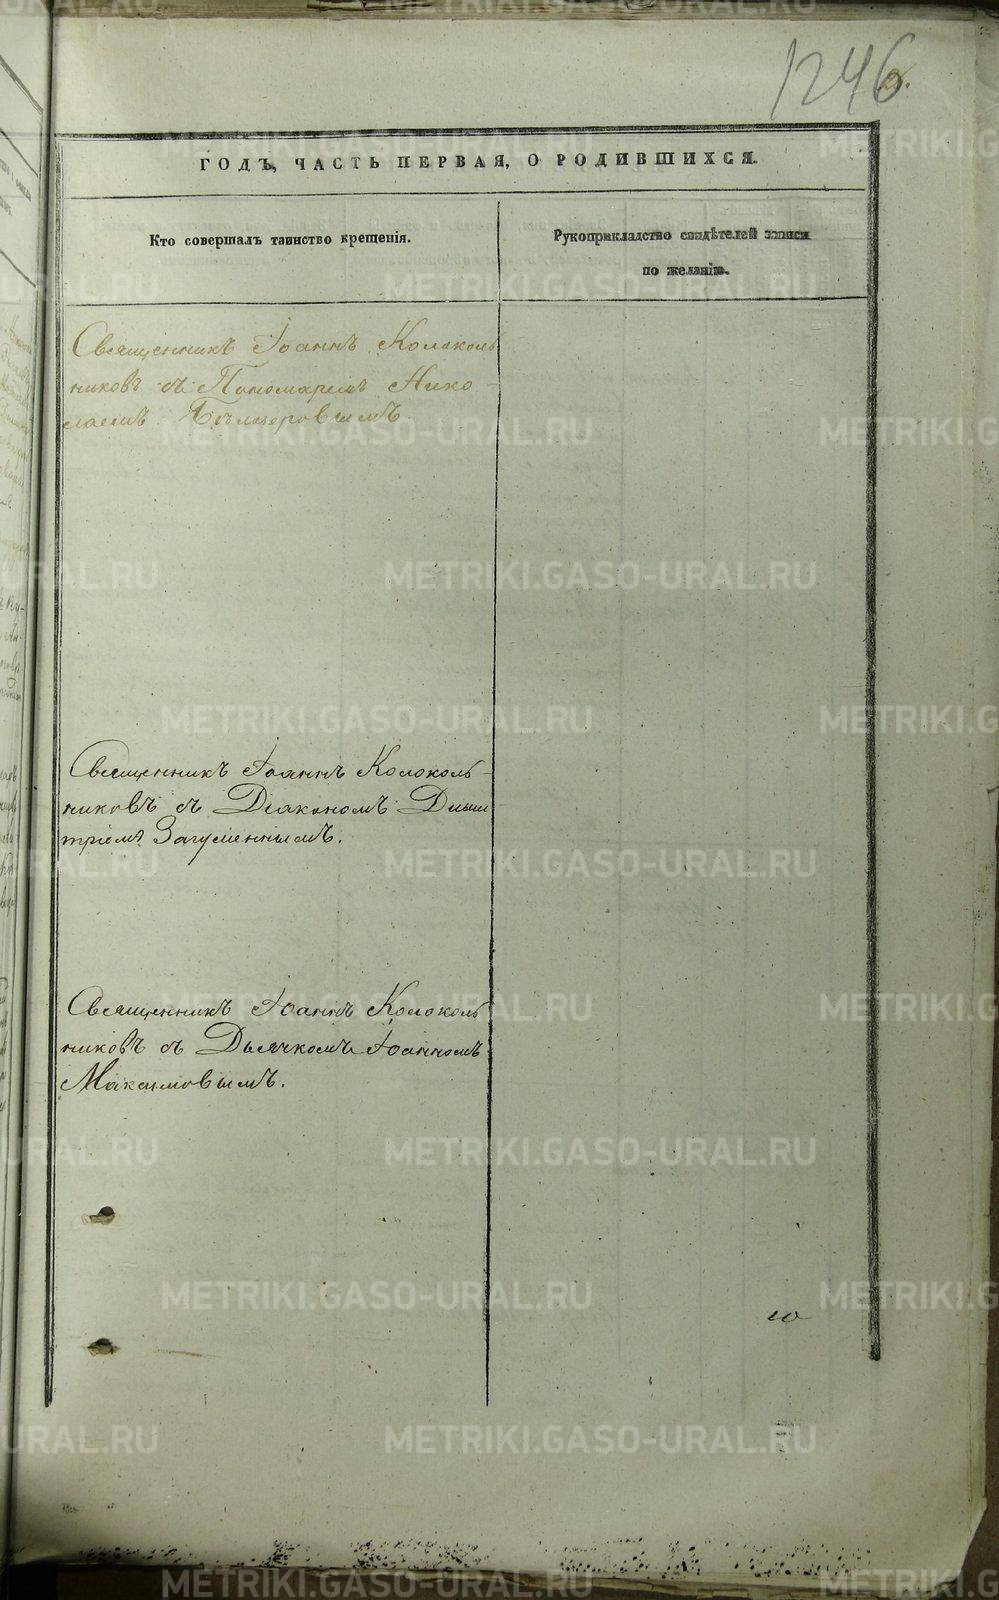 1246
ГОДЪ, ЧАСТЬ ПЕРВАЯ, О РОДИВШИХСЯ.
Кто совершалъ таинство крещенія.
Рукоприкладство свидѣтелей записи
по желанію.
Священникъ Іоаннъ Колоколь
никовъ съ Пономаремъ Нико-
лаемъ
Священникъ Іоаннъ Колоколь-
никовъ съ Діакономъ Дими
тріемъ Загуменнымъ.
Священникъ Іоаннъ Колоколь
никовъ съ Дьячкомъ Іоанномъ
Максимовымъ.
METRIKI.GASO-URAL.RU